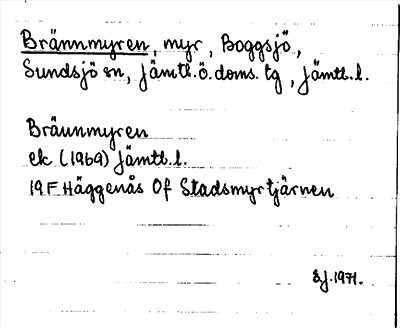 Brännmyren, myr, Boggsjö,
Sundsjö sn, Jämtl.ö.doms.tg, Jämtl.l.
Bräunmyren
ek (1969) Jämtl.l.
19F Häggenås 0f Stadsmyrtjärnen
1971.